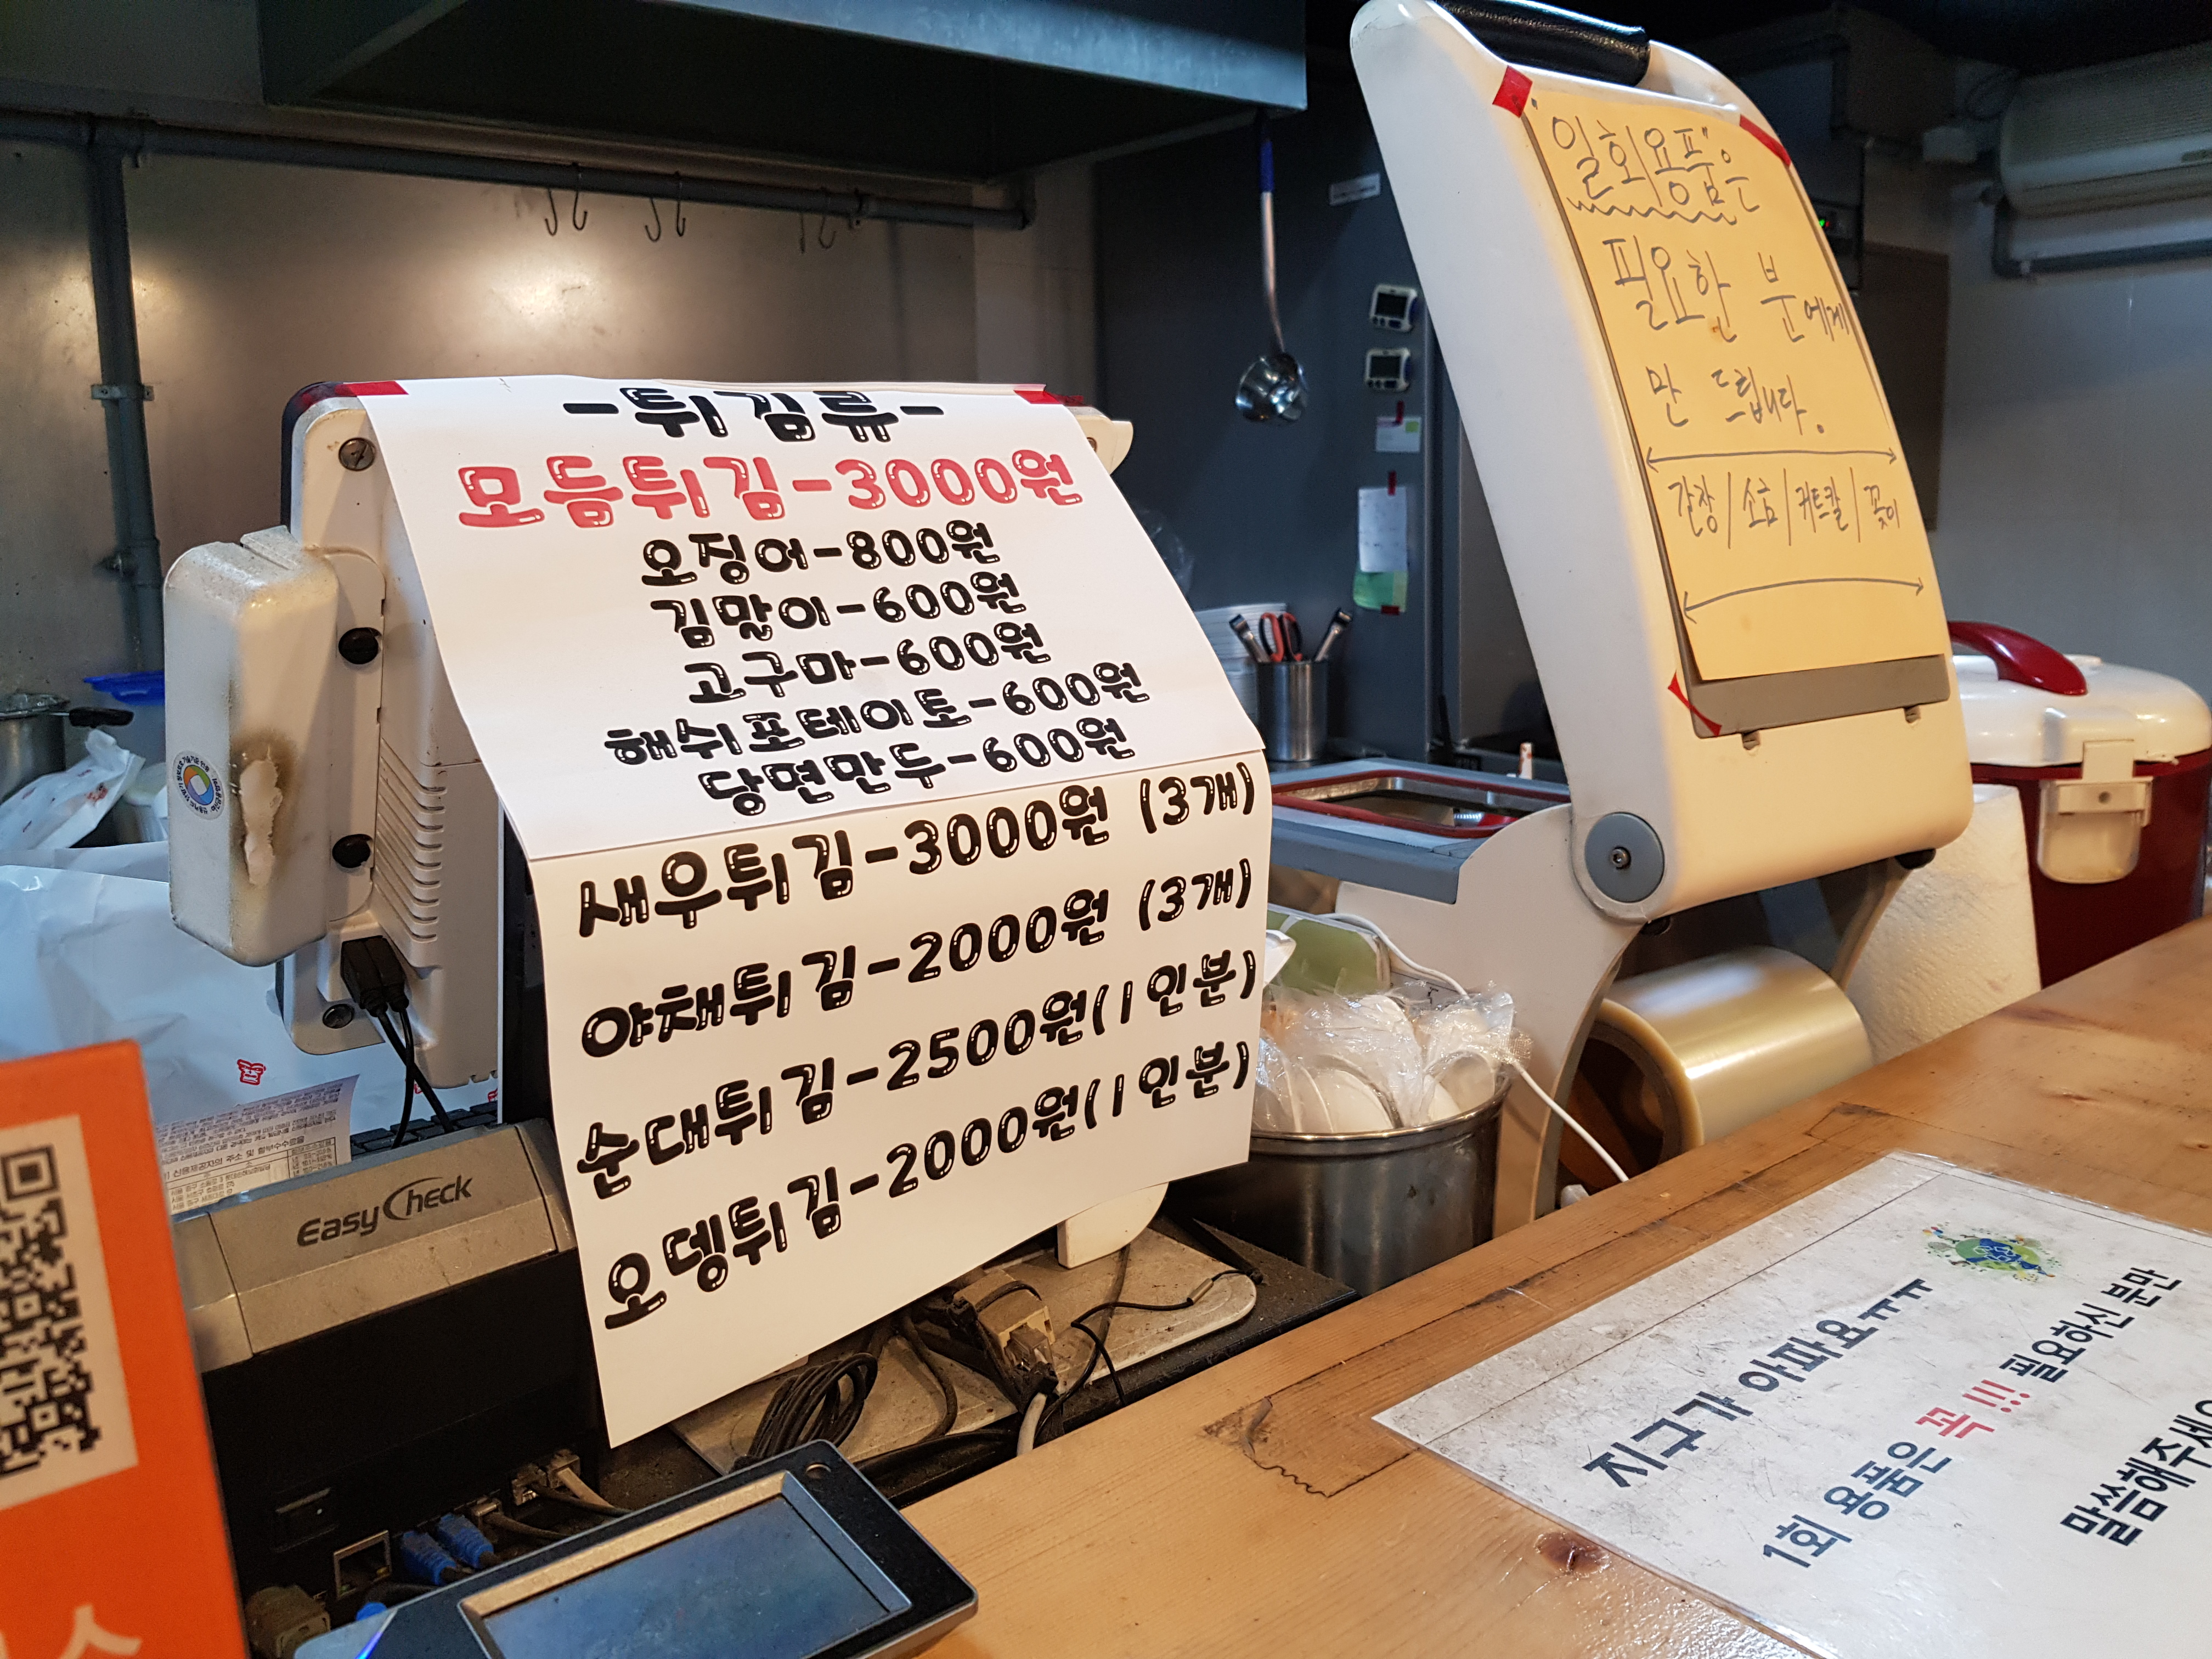 -튀김류-
모듬튀김-3000원
오징어-800원
김말이-600원
고구마-600원
해쉬포테이토-600원
당면만두-600원
새우튀김-3000원 (3개)
야채튀김-2000원 (3개)
순대튀김-2500원(1인분)
오뎅튀김-2000원(1인분)
"일회용품"은
필요한 분에게
만 드립니다.
간장/소금/커트칼/꽂이
EasyCheck
지구가 아파요ㅠㅠ
1회 용품은 꼭!!! 필요하신 분만
말씀해주세요